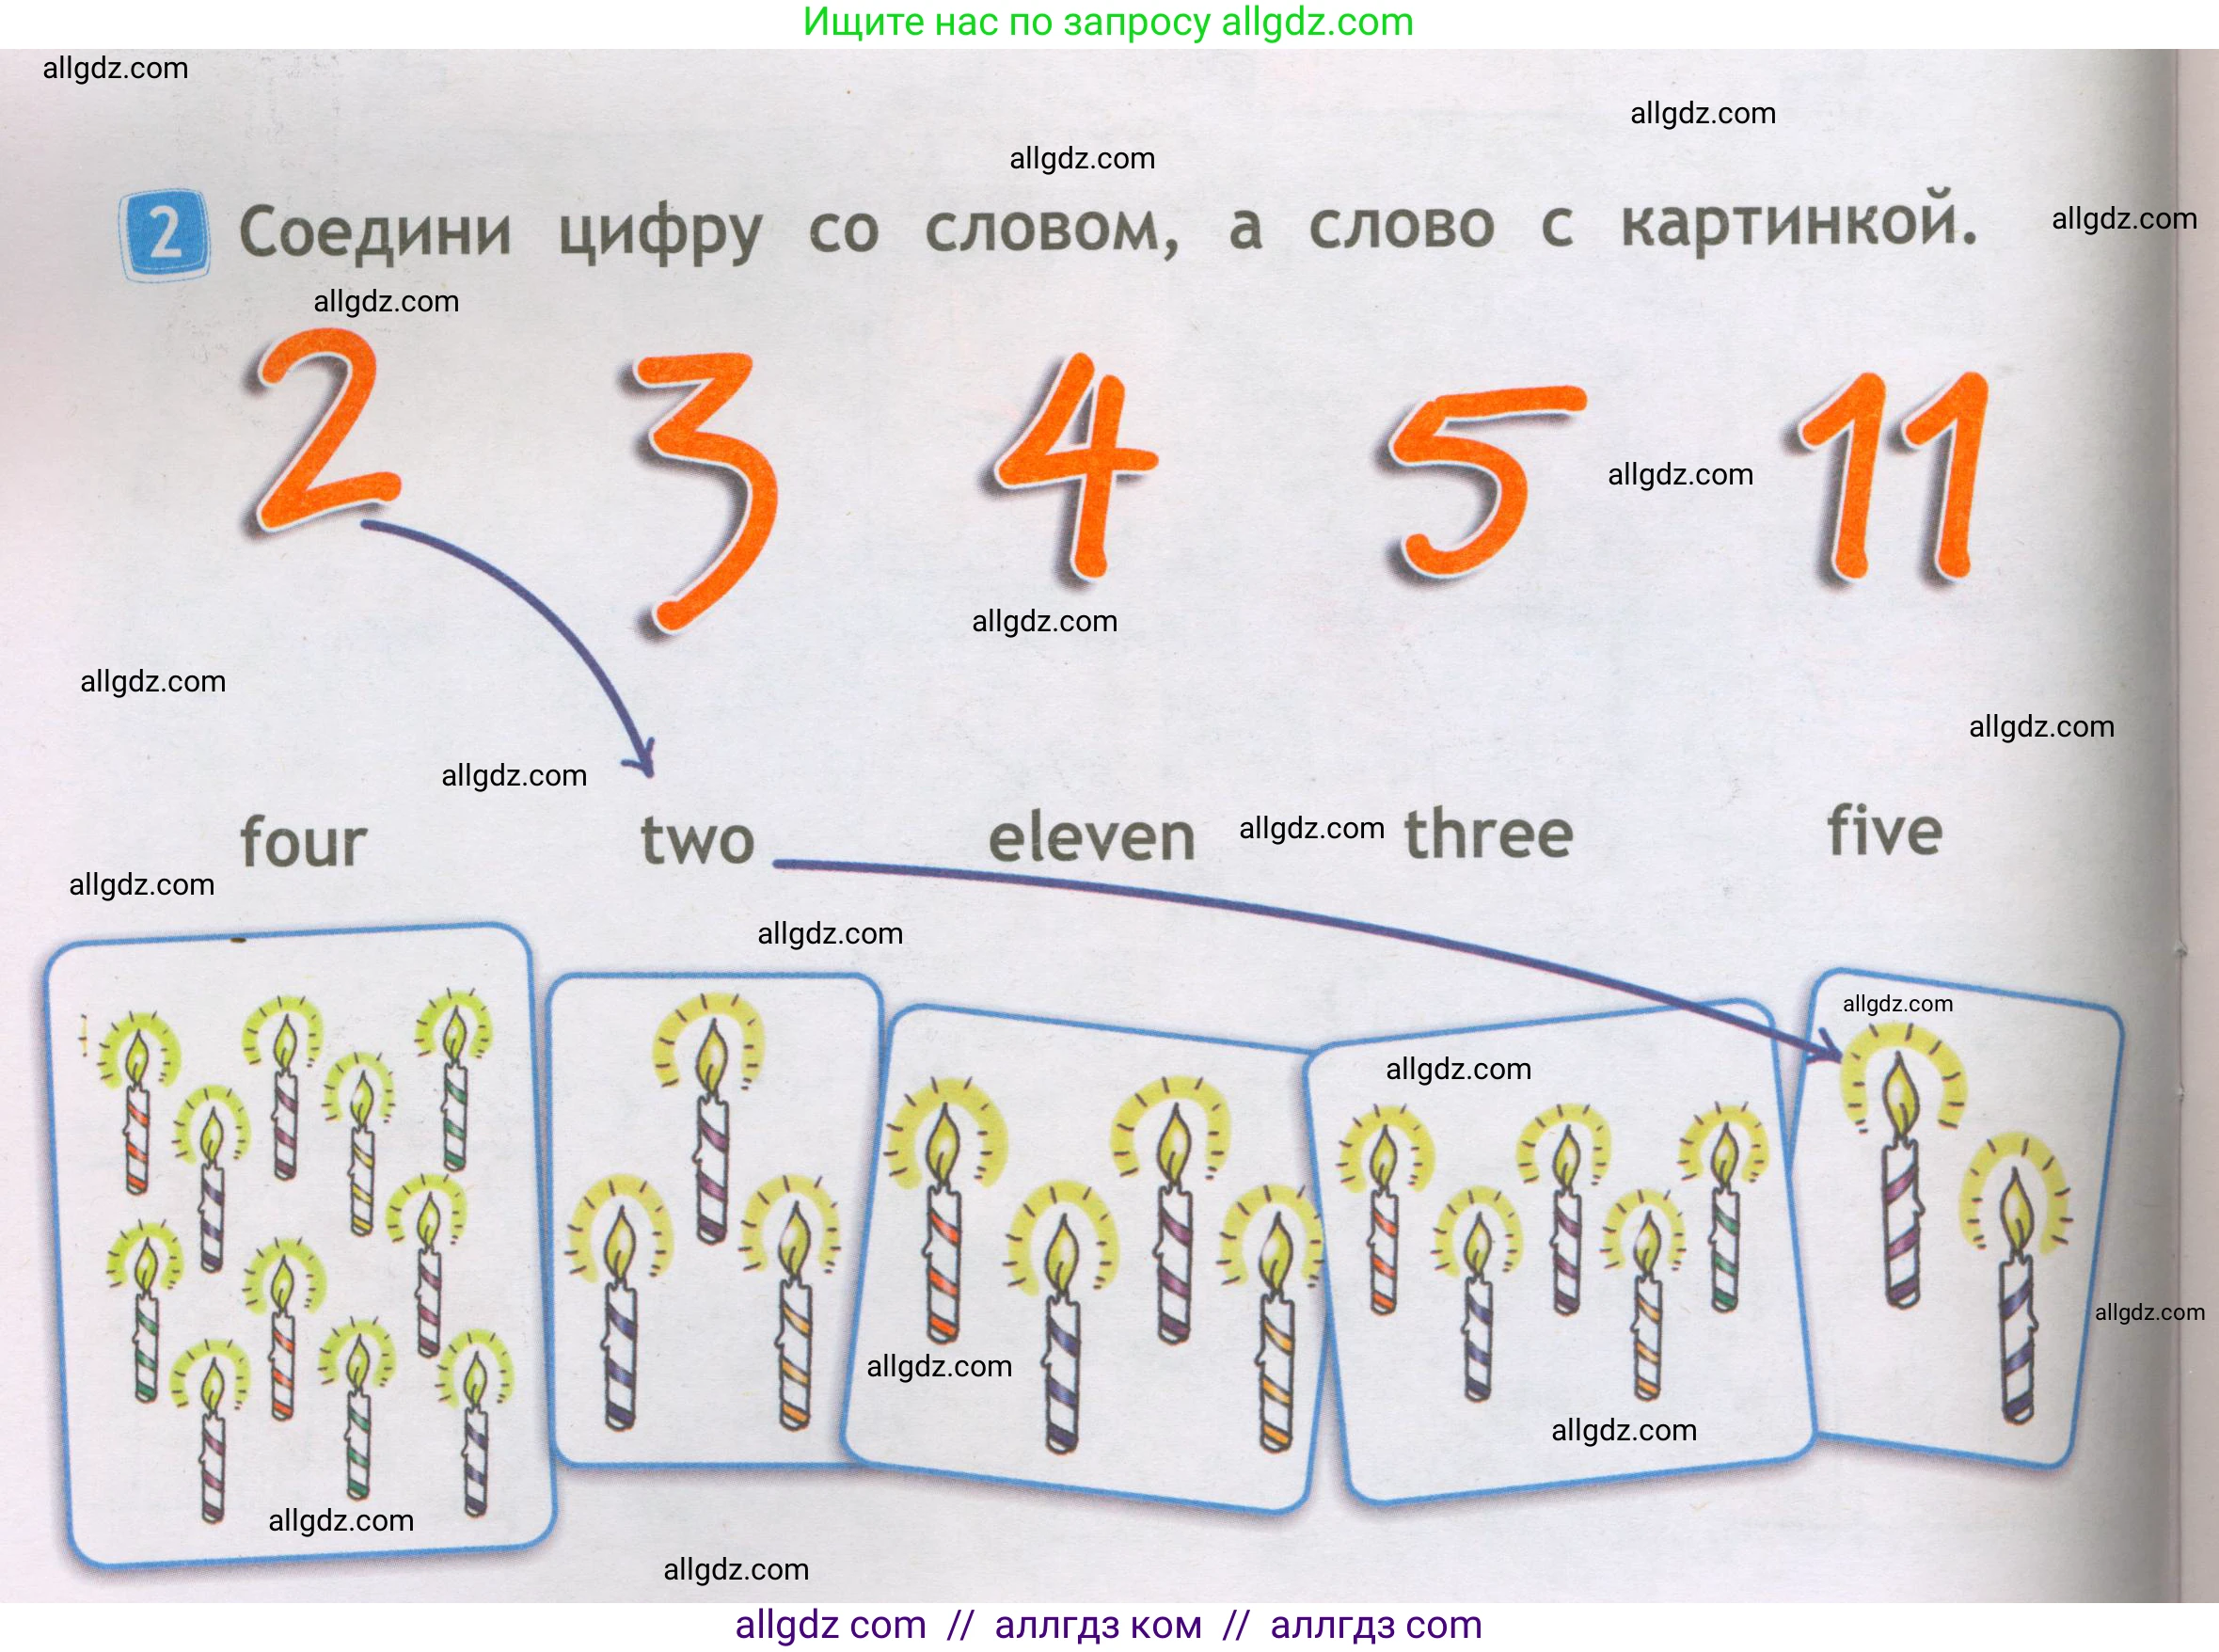 Ищите нас по запросу allgdz.com
allgdz.com
allgdz.com
allgdz.com
2 Соедини цифру со словом, а слово с картинкой.
allgdz.com
allgdz.com
2 3 4 5 11
allgdz.com
allgdz.com
allgdz.com
allgdz.com
allgdz.com
four two eleven allgdz.com three five
allgdz.com
allgdz.com
allgdz.com
allgdz.com
allgdz.com
allgdz.com
allgdz.com
allgdz.com
allgdz.com
allgdz com // аллгдз ком // аллгдз com